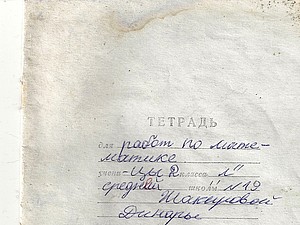 ТЕТРАДЬ
для работ по мате-
матике
учени-цы 2 класса "
средней школы №19
Жакуповой
Динары